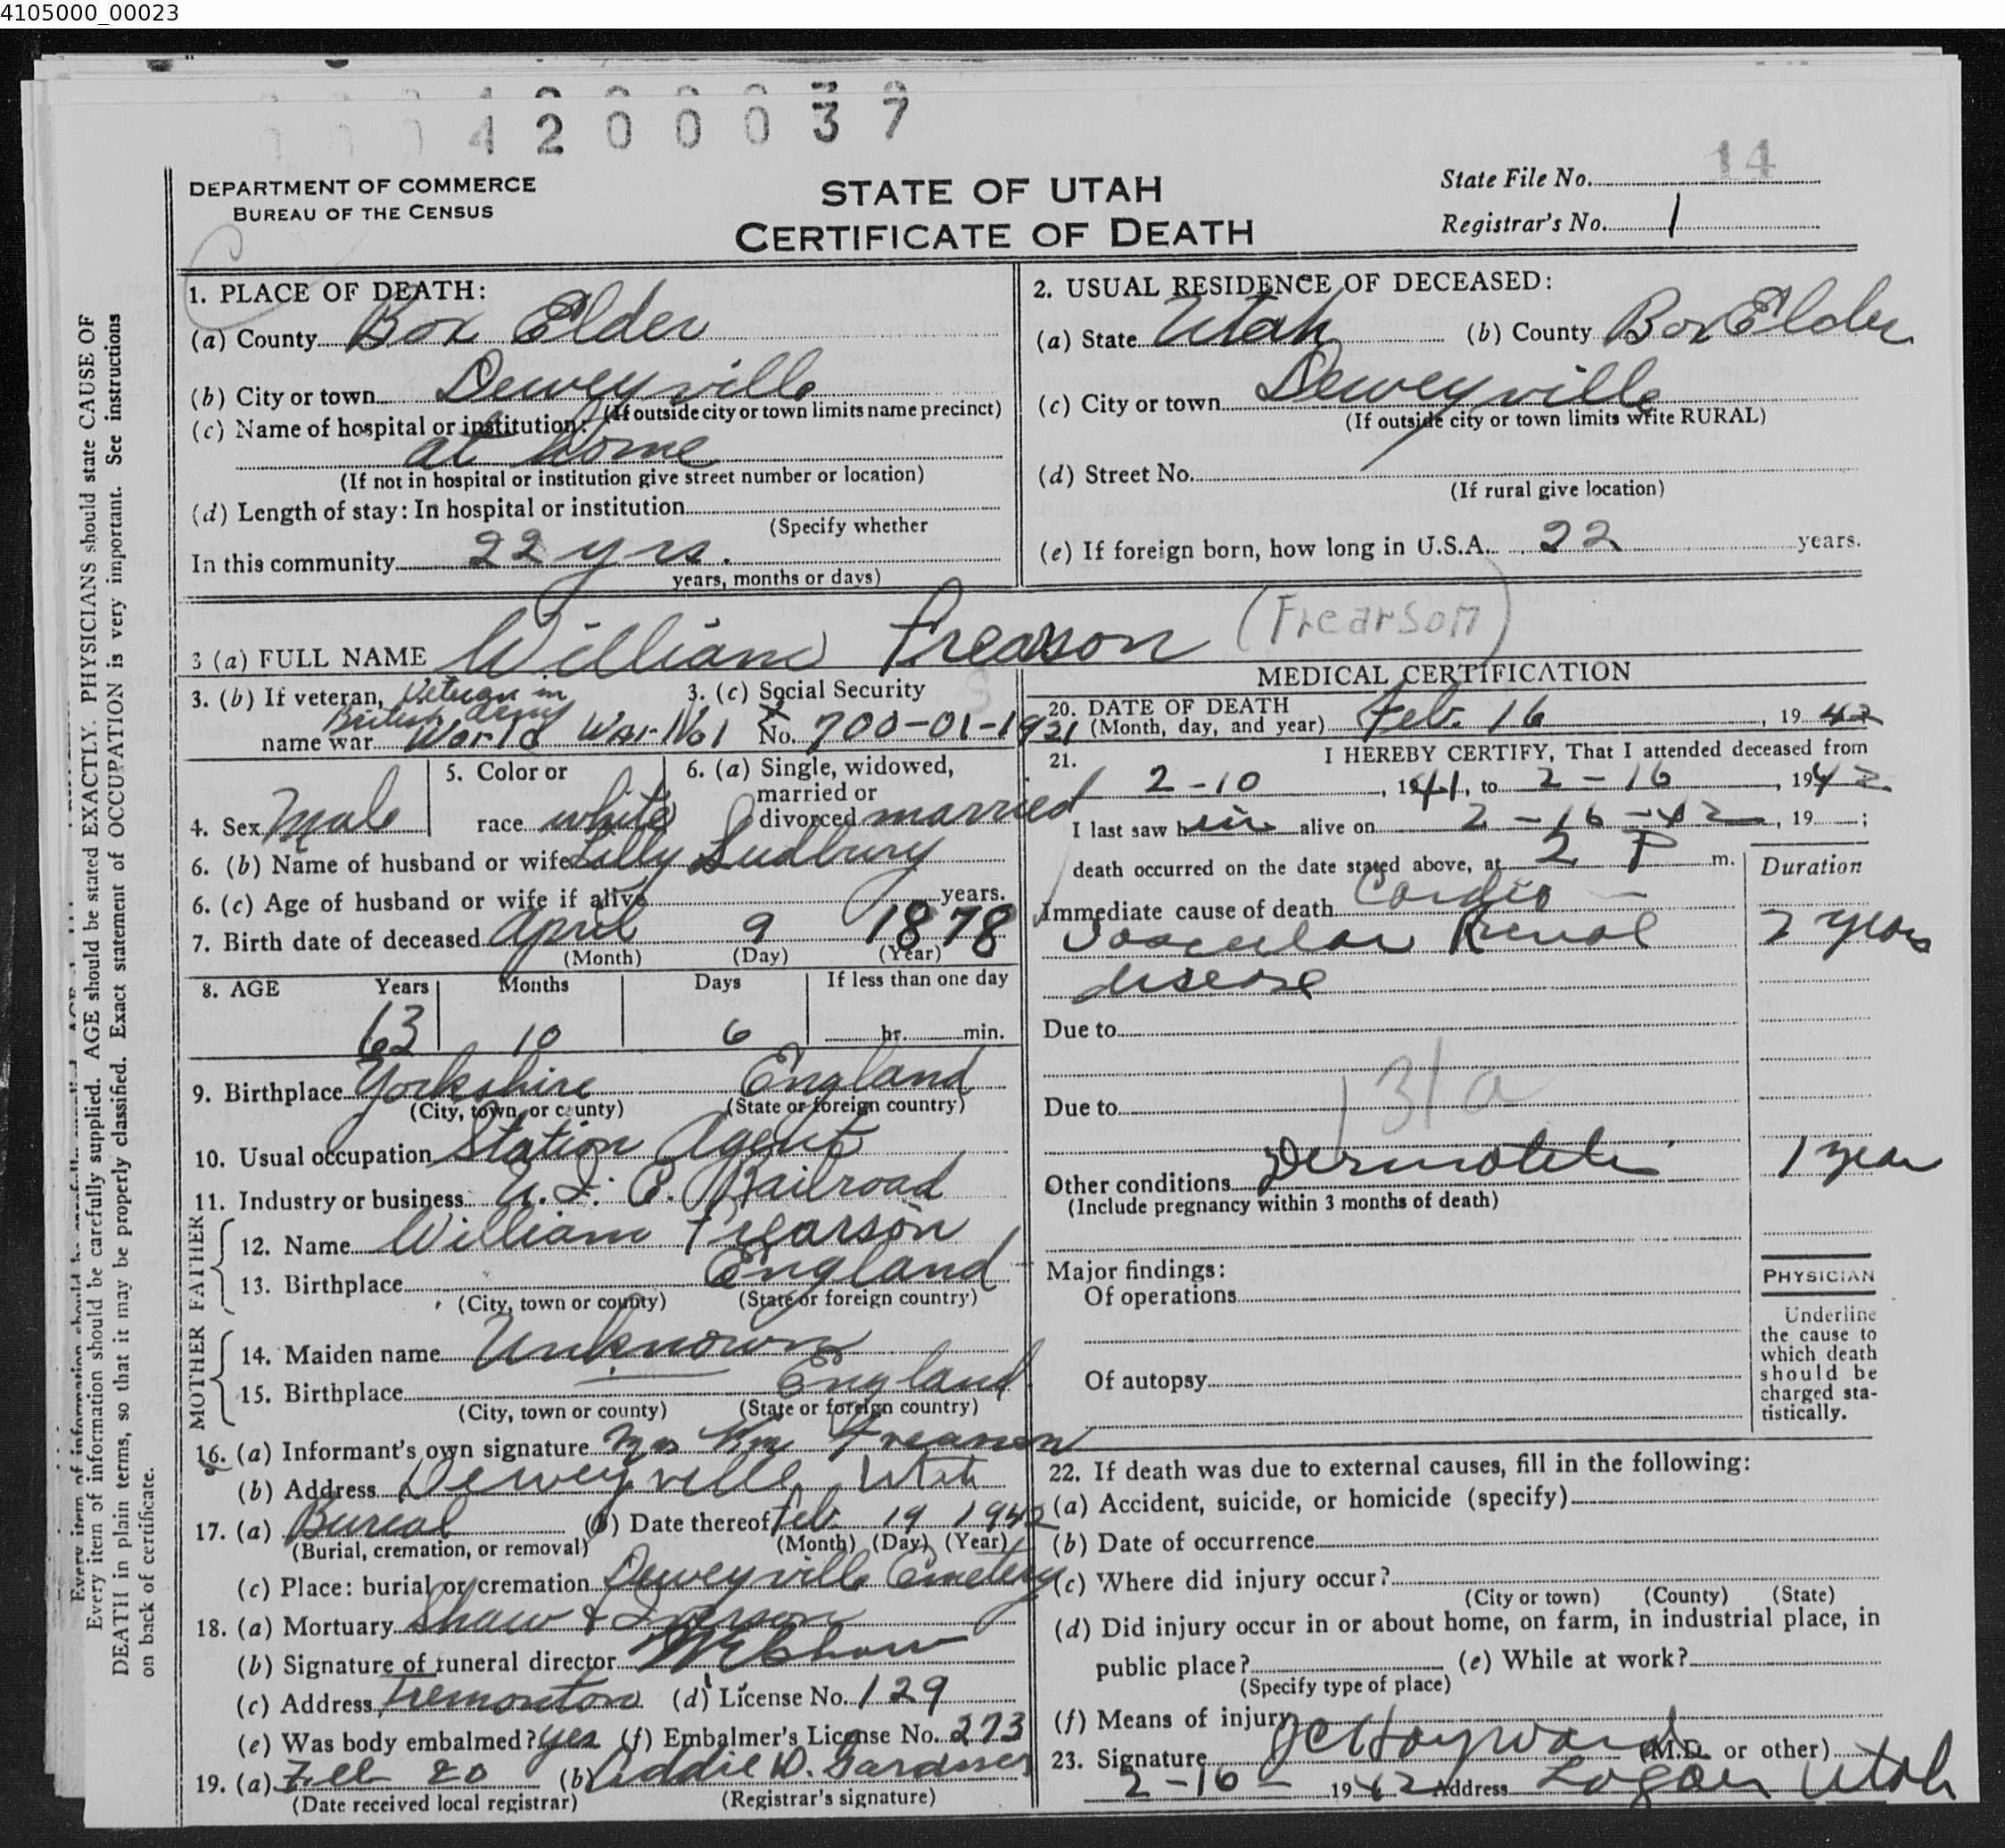 4105000_00023
4 2 0 0 0 3 7
DEPARTMENT OF COMMERCE
BUREAU OF THE CENSUS
STATE OF UTAH
CERTIFICATE OF DEATH
State File No. 14
Registrar's No. 1
1. PLACE OF DEATH:
(a) County Box Elder
(b) City or town Deweyville
(If outside city or town limits name precinct)
(c) Name of hospital or institution:
at home
(If not in hospital or institution give street number or location)
(d) Length of stay: In hospital or institution
(Specify whether
In this community 22 yrs.
years, months or days)
2. USUAL RESIDENCE OF DECEASED:
(a) State Utah (b) County Box Elder
(c) City or town Deweyville
(If outside city or town limits write RURAL)
(d) Street No.
(If rural give location)
(e) If foreign born, how long in U.S.A. 22 years.
3 (a) FULL NAME William Frearson (Frearson)
3. (b) If veteran, Veteran in
British Army
name war World War No 1
3. (c) Social Security
No. 700-01-1921
4. Sex Male
5. Color or
race white
6. (a) Single, widowed,
married or
divorced married
6. (b) Name of husband or wife Lilly Sudbury
6. (c) Age of husband or wife if alive years.
7. Birth date of deceased April 9 1878
(Month) (Day) (Year)
8. AGE Years Months Days If less than one day
63 10 6 hr. min.
9. Birthplace Yorkshire England
(City, town, or county) (State or foreign country)
10. Usual occupation Station Agent
11. Industry or business U. I. C. Railroad
FATHER
12. Name William Frearson
13. Birthplace England
(City, town or county) (State or foreign country)
MOTHER
14. Maiden name Unknown
15. Birthplace England
(City, town or county) (State or foreign country)
16. (a) Informant's own signature Mrs Wm Frearson
(b) Address Deweyville, Utah
17. (a) Burial (b) Date thereof Feb 19 1942
(Burial, cremation, or removal) (Month) (Day) (Year)
(c) Place: burial or cremation Deweyville Cemetery
18. (a) Mortuary Shaw & Iverson
(b) Signature of funeral director
(c) Address Tremonton (d) License No. 129
(e) Was body embalmed? yes (f) Embalmer's License No. 273
19. (a) Feb 20 (b) Addie D. Gardner
(Date received local registrar) (Registrar's signature)
MEDICAL CERTIFICATION
20. DATE OF DEATH
(Month, day, and year) Feb. 16, 1942
21. I HEREBY CERTIFY, That I attended deceased from
2-10, 1941, to 2-16, 1942
I last saw him alive on 2-16-42, 19 ;
death occurred on the date stated above, at 2 P m.
Duration
Immediate cause of death Cardio-
Vascular Renal 2 years
disease
Due to
131a
Due to
Other conditions Dermatitis 1 year
(Include pregnancy within 3 months of death)
Major findings:
Of operations
Of autopsy
PHYSICIAN
Underline
the cause to
which death
should be
charged sta-
tistically.
22. If death was due to external causes, fill in the following:
(a) Accident, suicide, or homicide (specify)
(b) Date of occurrence
(c) Where did injury occur?
(City or town) (County) (State)
(d) Did injury occur in or about home, on farm, in industrial place, in
public place? (e) While at work?
(Specify type of place)
(f) Means of injury
23. Signature J C Hayward (M.D. or other)
2-16- 1942 Address Logan Utah
Every item of information should be carefully supplied. AGE should be stated EXACTLY. PHYSICIANS should state CAUSE OF
DEATH in plain terms, so that it may be properly classified. Exact statement of OCCUPATION is very important. See instructions
on back of certificate.